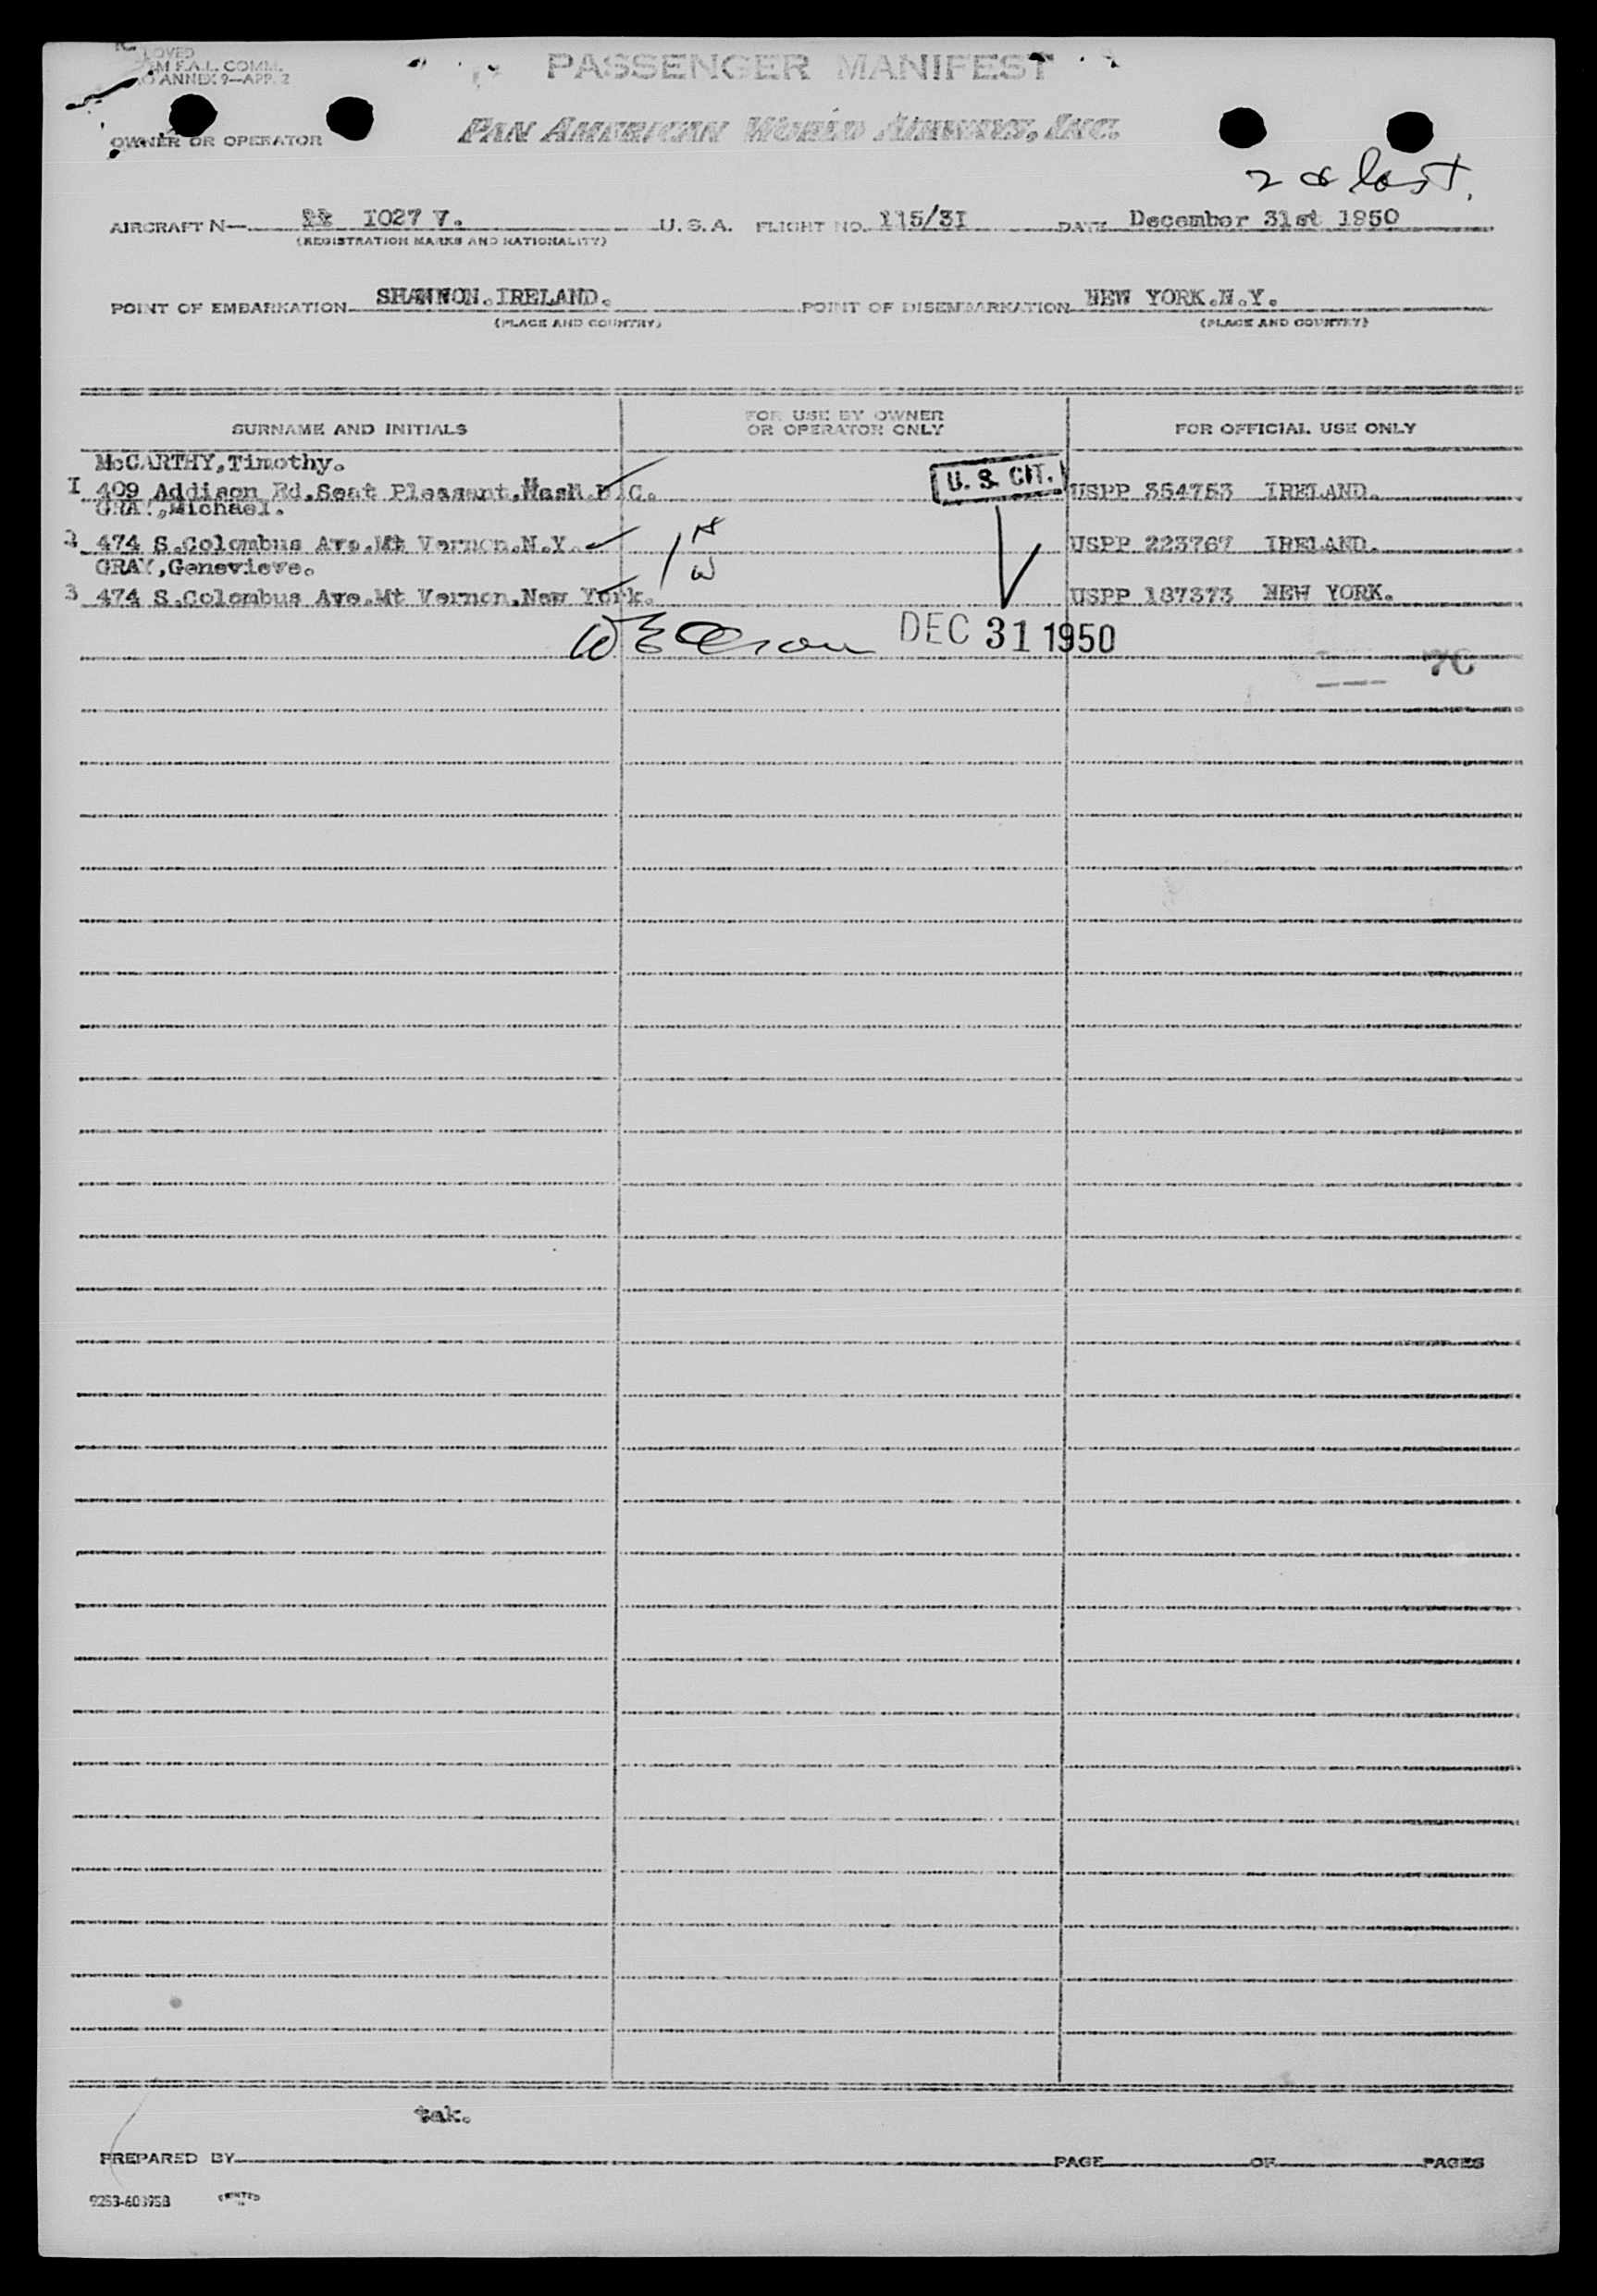 PASSENGER MANIFEST
M F.A.L. COMM.
ANNEX 9—APP. 2
OWNER OR OPERATOR PAN AMERICAN WORLD AIRWAYS, INC.
2 & last.
AIRCRAFT N— 1027 V. U. S. A. FLIGHT NO. 115/3I DATE December 31st 1950
(REGISTRATION MARKS AND NATIONALITY)
POINT OF EMBARKATION SHANNON.IRELAND. POINT OF DISEMBARKATION NEW YORK.N.Y.
(PLACE AND COUNTRY) (PLACE AND COUNTRY)
SURNAME AND INITIALS FOR USE BY OWNER OR OPERATOR ONLY FOR OFFICIAL USE ONLY
McCARTHY,Timothy.
I 409 Addison Rd.Seat Pleasant.Wash D.C. U. S. CIT. USPP 354753 IRELAND.
GRAY,Michael.
2 474 S.Colombus Ave.Mt Vernon.N.Y. USPP 223767 IRELAND.
GRAY,Genevieve.
3 474 S.Colombus Ave.Mt Vernon.New York. USPP 187373 NEW YORK.
DEC 31 1950
7C
tek.
PREPARED BY PAGE OF PAGES
PRINTED